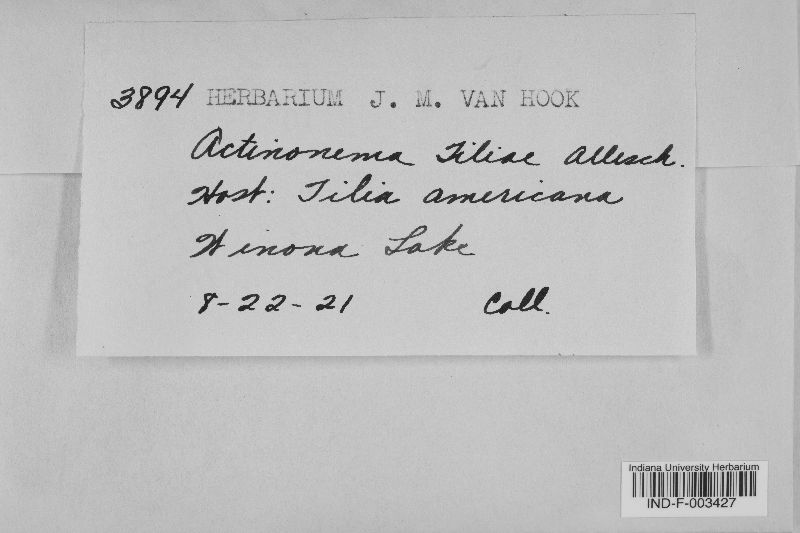 3894 HERBARIUM J. M. VAN HOOK
Actinonema Tiliae Allesch.
Host: Tilia americana
Winona Lake
8-22-21 Coll.
Indiana University Herbarium
IND-F-003427